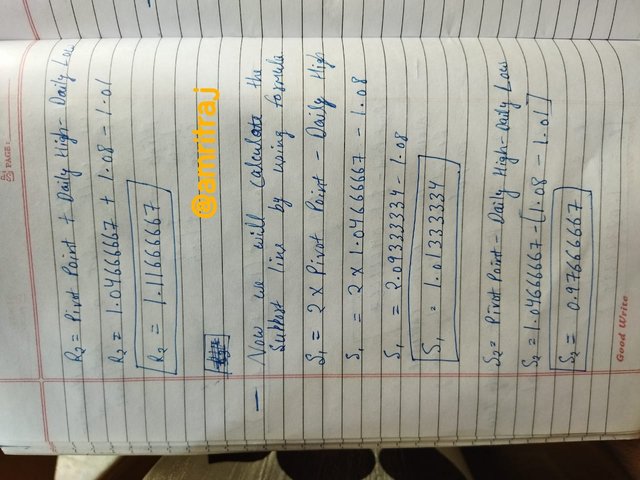 PAGE:
R2 = Pivot Point + Daily High - Daily Low
R2 = 1.04666667 + 1.08 - 1.01
R2 = 1.11666667
@amritraj
— Now we will calculate the
Support line by using formula
S1 = 2 x Pivot Point - Daily High
S1 = 2 x 1.04666667 - 1.08
S1 = 2.09333334 - 1.08
S1 = 1.01333334
S2 = Pivot Point - Daily High - Daily Low
S2 = 1.04666667 - [1.08 - 1.01]
S2 = 0.97666667
Good Write